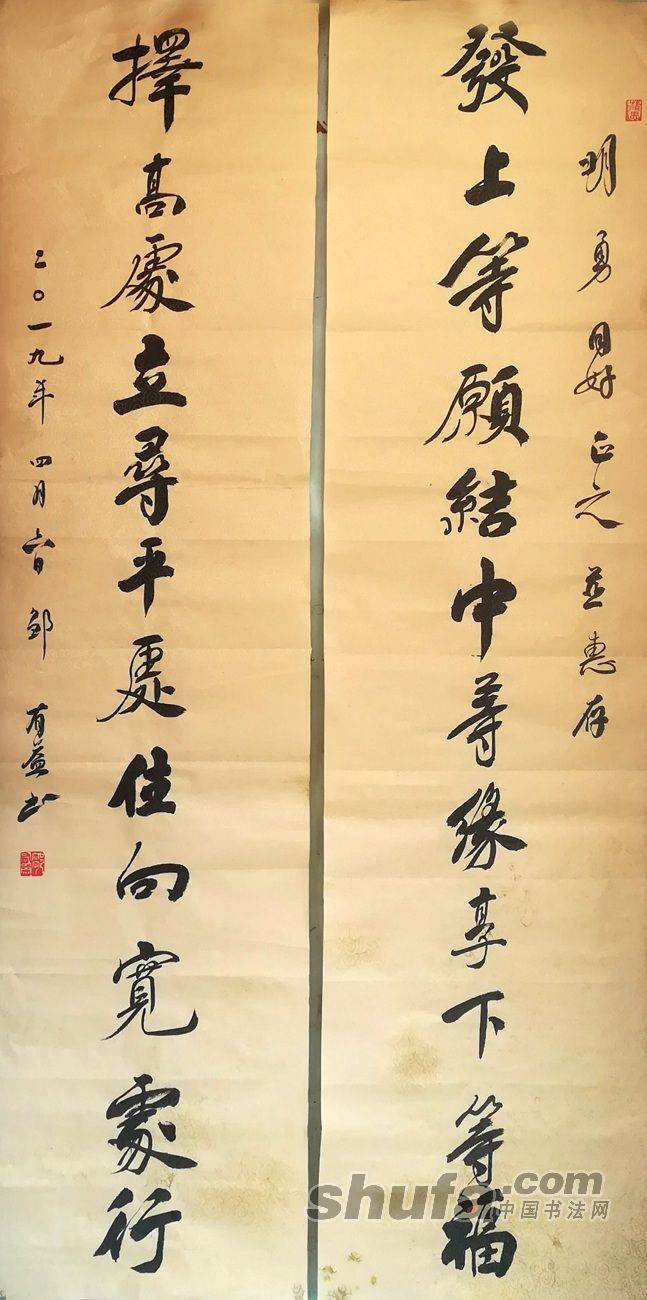 明勇同好正之並惠存
發上等願結中等緣享下等福
擇高處立尋平處住向寬處行
二〇一九年四月六日邹有益书
shufa.com
中国书法网